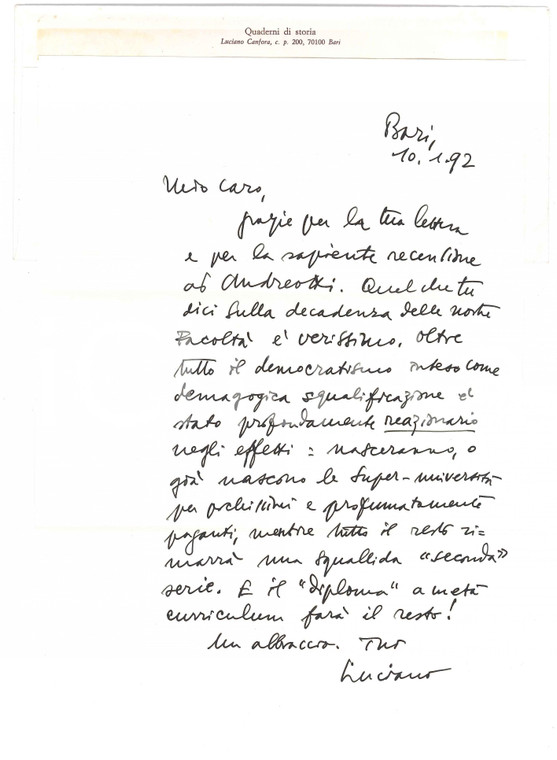 Quaderni di storia
Luciano Canfora, c. p. 200, 70100 Bari
Bari,
10.1.92
Mio caro,
grazie per la tua lettera
e per la sapiente recensione
ad Andreotti. Quel che tu
dici sulla decadenza delle nostre
Facoltà è verissimo. Oltre
tutto il democratismo inteso come
demagogica squalificazione è
stato profondamente reazionario
negli effetti: nasceranno, o
già nascono le super-università
per pochissimi e profumatamente
paganti, mentre tutto il resto ri=
marrà una squallida "seconda"
serie. E il "diploma" a metà
curriculum farà il resto!
Un abbraccio. Tuo
Luciano